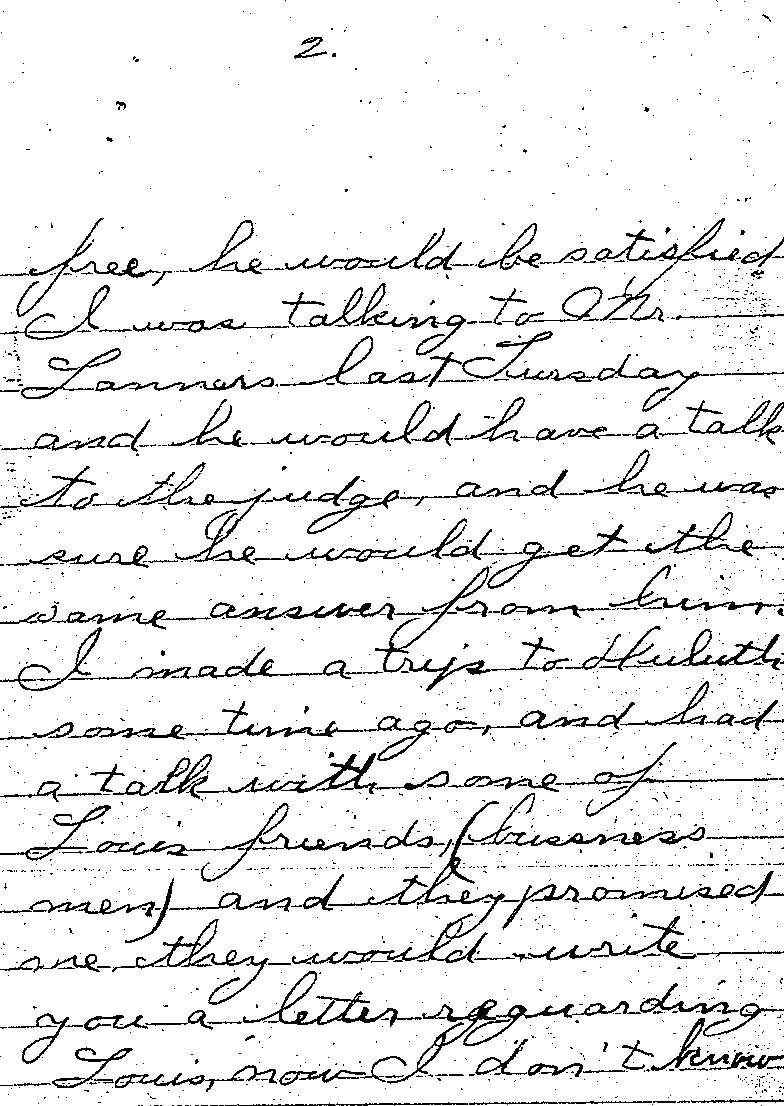 2.
free, he would be satisfied
I was talking to Mr.
Lanners last Tuesday
and he would have a talk
to the judge, and he was
sure he would get the
same answer from him.
I made a trip to Duluth
some time ago, and had
a talk with some of
Louis friends, (bussness
men) and they promised
me they would write
you a letter reguarding
Louis, now I don't know